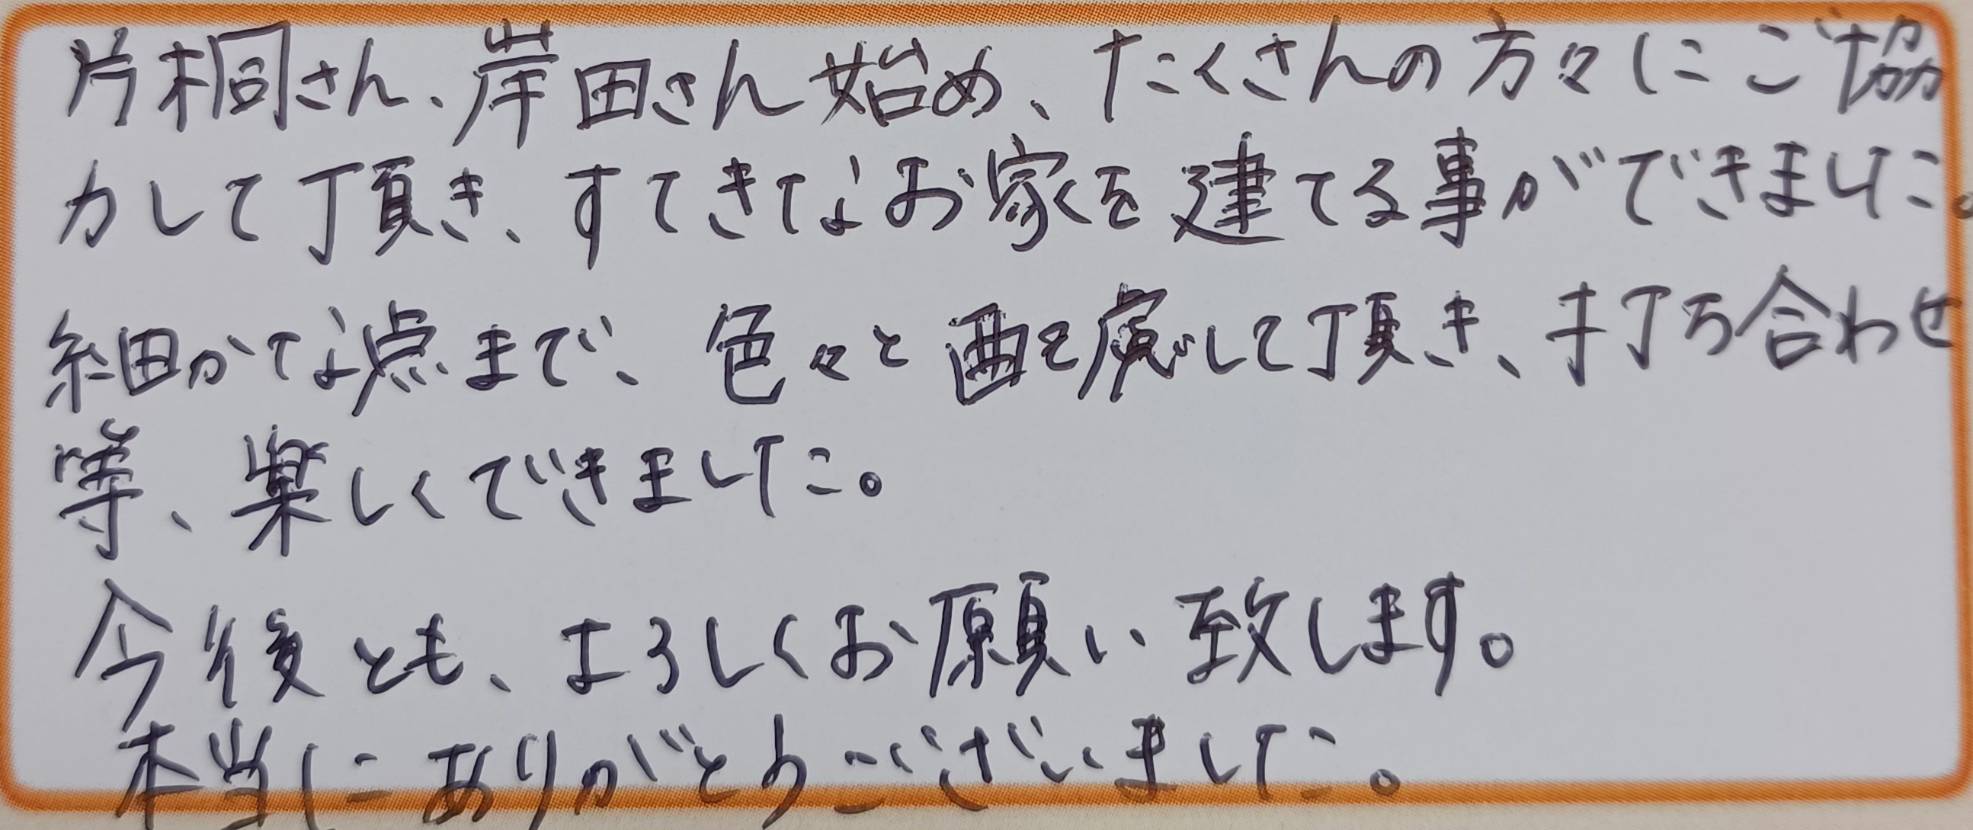 片桐さん、岸田さん始め、たくさんの方々にご協
力して頂き、すてきなお家を建てる事ができました。
細かな点まで、色々と配慮して頂き、打ち合わせ
等、楽しくできました。
今後とも、よろしくお願い致します。
本当にありがとうございました。